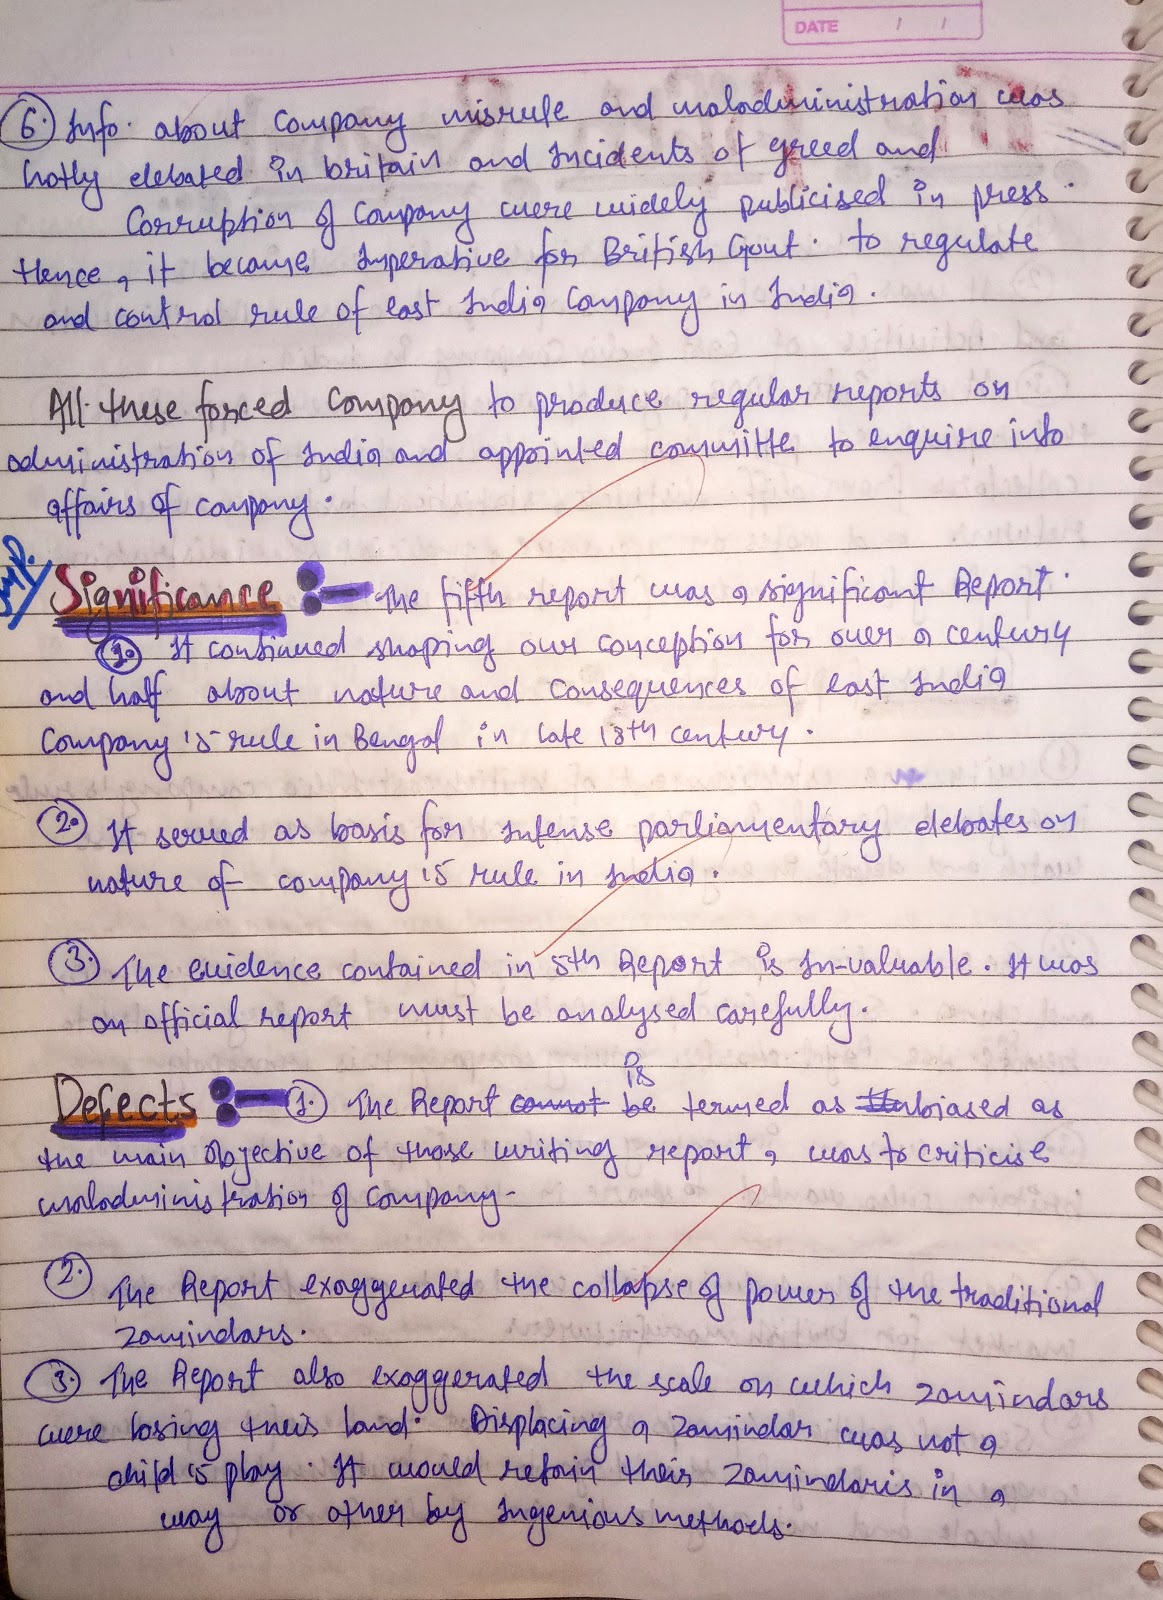 DATE / /
6. Info. about Company misrule and maladministration was
hotly debated in britain and Incidents of greed and
Corruption of Company were widely publicised in press.
Hence, it became Imperative for British Govt. to regulate
and control rule of east India Company in India.
All these forced Company to produce regular reports on
administration of India and appointed committe to enquire into
affairs of company.
Imp.
Significance :- The fifth report was a significant Report.
1. It continued shaping our conception for over a century
and half about nature and consequences of east India
Company's rule in Bengal in late 18th century.
2. It served as basis for intense parliamentary debates on
nature of company's rule in India.
3. The evidence contained in 5th Report is In-valuable. It was
an official report must be analysed carefully.
is
Defects :- 1. The Report cannot be termed as biased as
the main objective of those writing report, was to criticise
maladministration of company-
2. The Report exaggerated the collapse of power of the traditional
zamindars.
3. The Report also exaggerated the scale on which zamindars
were losing their land. Displacing a zamindar was not a
child's play. It would retain their zamindaris in a
way or other by Ingenious methods.